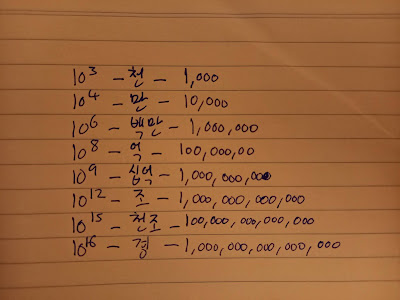 10³ – 천 – 1,000
10⁴ – 만 – 10,000
10⁶ – 백만 – 1,000,000
10⁸ – 억 – 100,000,00
10⁹ – 십억 – 1,000,000,000
10¹² – 조 – 1,000,000,000,000
10¹⁵ – 천조 – 100,000,000,000,000
10¹⁶ – 경 – 1,000,000,000,000,000